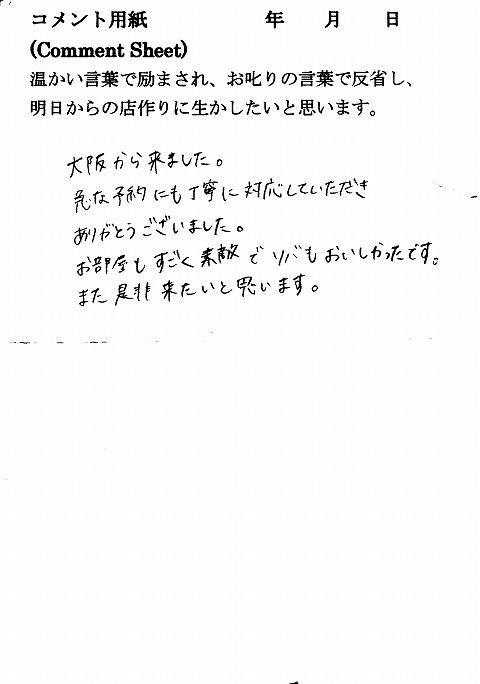 コメント用紙　　　年　月　日
(Comment Sheet)
温かい言葉で励まされ、お叱りの言葉で反省し、
明日からの店作りに生かしたいと思います。
大阪から来ました。
急な予約にも丁寧に対応していただき
ありがとうございました。
お部屋もすごく素敵でソバもおいしかったです。
また是非来たいと思います。